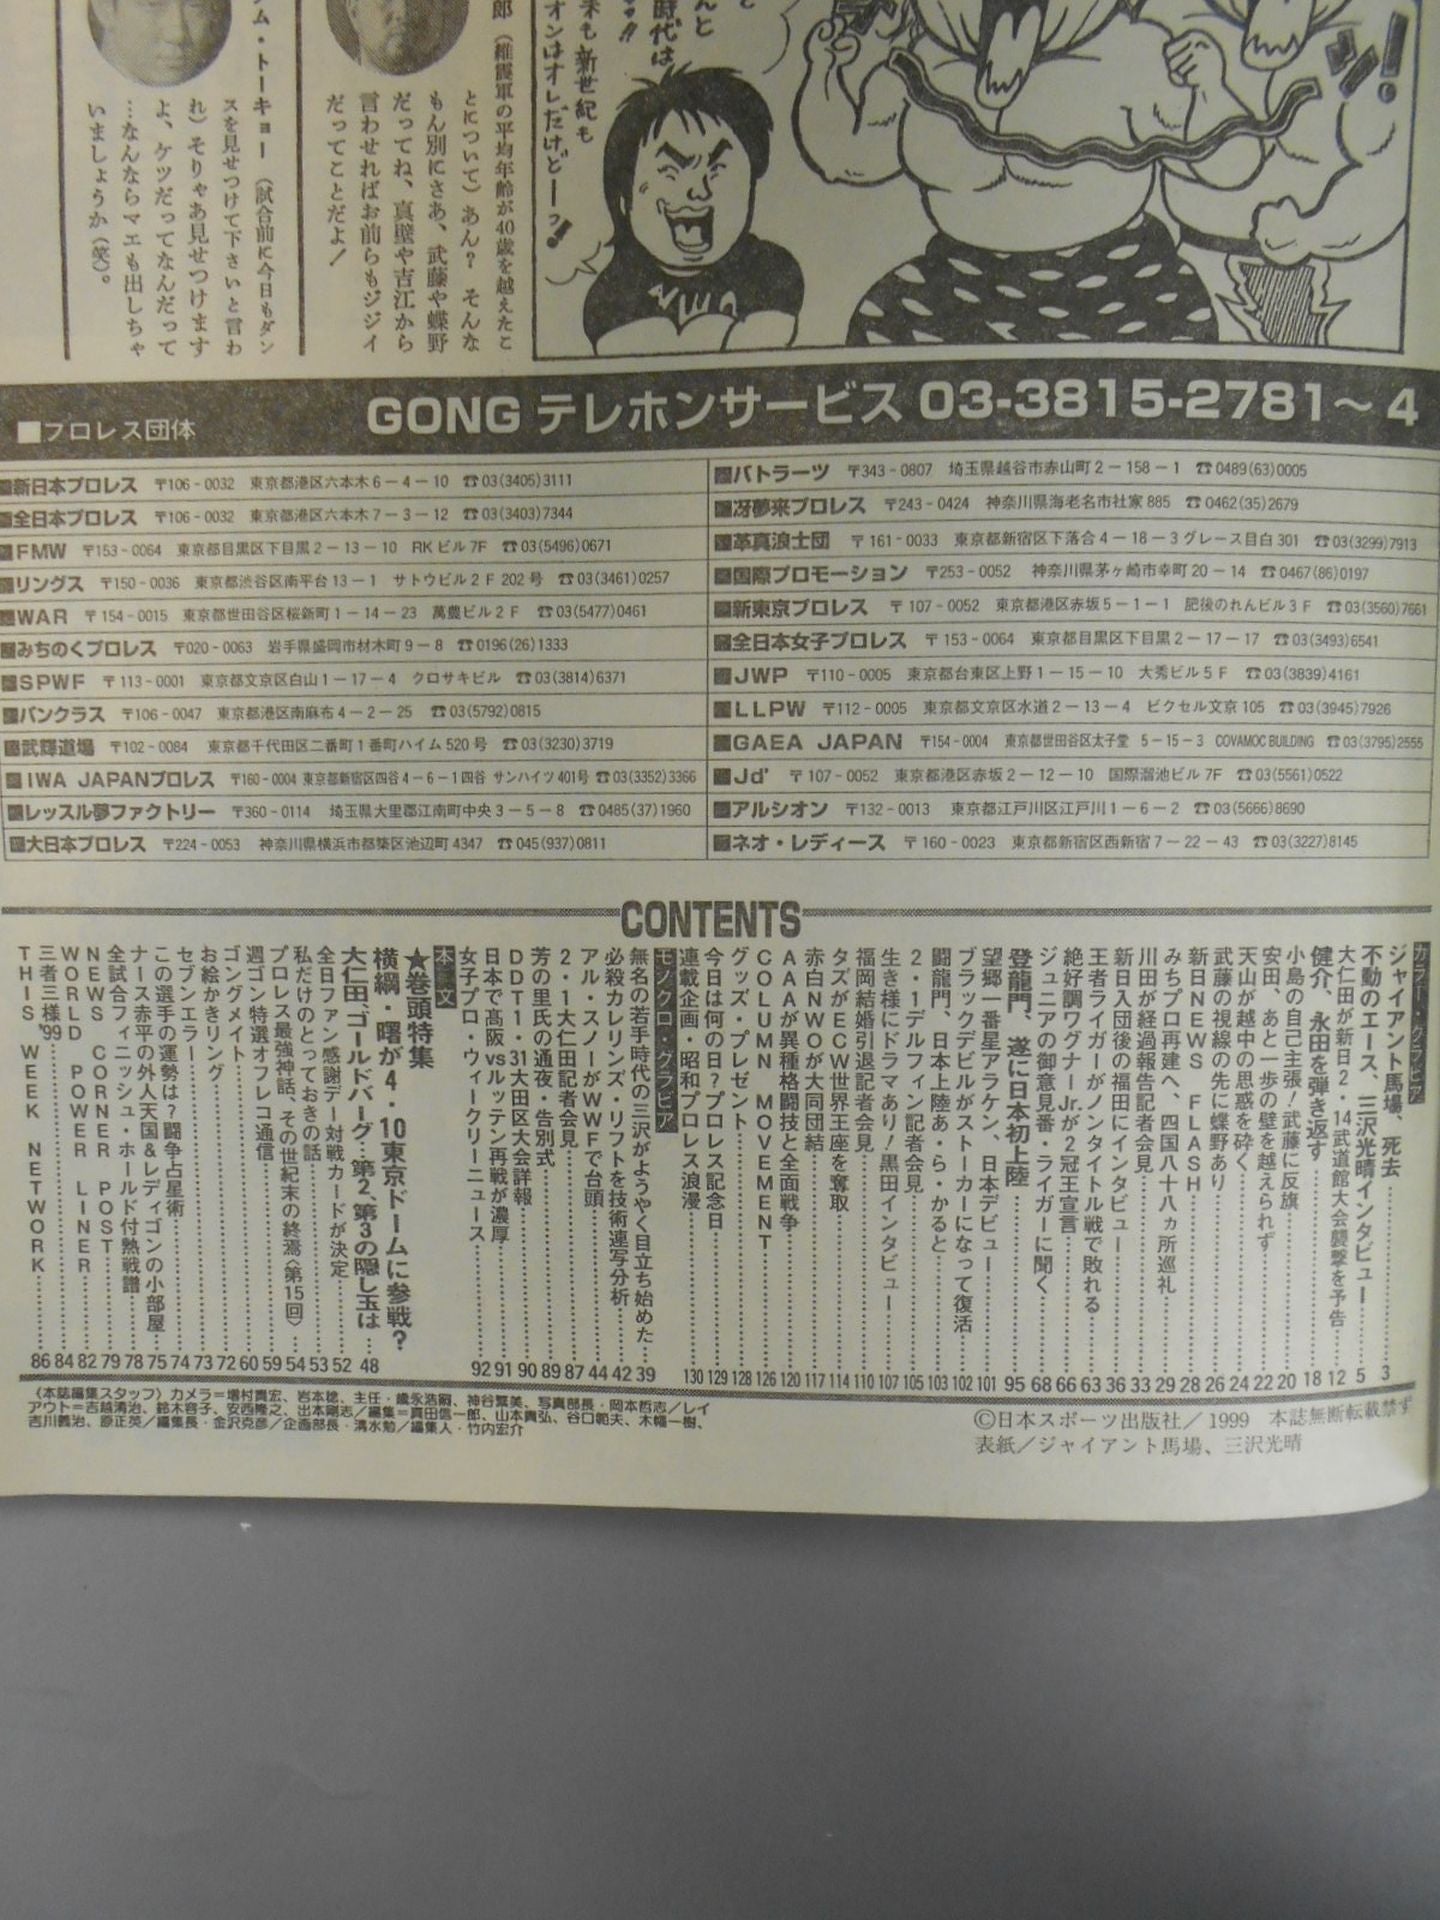 時代は
来も新世紀も
オンはオレだけどーっ!
郎（維震軍の平均年齢が40歳を越えたこ
とについて）あん？ そんな
もん別にさあ、武藤や蝶野
だってね、真壁や吉江から
言わせればお前らもジジイ
だってことだよ！
ム・トーキョー（試合前に今日もダン
スを見せつけて下さいと言わ
れ）そりゃあ見せつけます
よ、ケツだってなんだって
…なんならマエも出しちゃ
いましょうか（笑）。
■プロレス団体
GONG テレホンサービス 03-3815-2781～4
■新日本プロレス 〒106-0032 東京都港区六本木6-4-10 ☎03(3405)3111
■全日本プロレス 〒106-0032 東京都港区六本木7-3-12 ☎03(3403)7344
■FMW 〒153-0064 東京都目黒区下目黒2-13-10 RKビル7F ☎03(5496)0671
■リングス 〒150-0036 東京都渋谷区南平台13-1 サトウビル2F 202号 ☎03(3461)0257
■WAR 〒154-0015 東京都世田谷区桜新町1-14-23 萬豊ビル2F ☎03(5477)0461
■みちのくプロレス 〒020-0063 岩手県盛岡市材木町9-8 ☎0196(26)1333
■SPWF 〒113-0001 東京都文京区白山1-17-4 クロサキビル ☎03(3814)6371
■パンクラス 〒106-0047 東京都港区南麻布4-2-25 ☎03(5792)0815
■武輝道場 〒102-0084 東京都千代田区二番町1番町ハイム520号 ☎03(3230)3719
■IWA JAPANプロレス 〒160-0004 東京都新宿区四谷4-6-1四谷 サンハイツ401号 ☎03(3352)3366
■レッスル夢ファクトリー 〒360-0114 埼玉県大里郡江南町中央3-5-8 ☎0485(37)1960
■大日本プロレス 〒224-0053 神奈川県横浜市都築区池辺町4347 ☎045(937)0811
■バトラーツ 〒343-0807 埼玉県越谷市赤山町2-158-1 ☎0489(63)0005
■冴夢来プロレス 〒243-0424 神奈川県海老名市社家885 ☎0462(35)2679
■革真浪士団 〒161-0033 東京都新宿区下落合4-18-3グレース目白301 ☎03(3299)7913
■国際プロモーション 〒253-0052 神奈川県茅ヶ崎市幸町20-14 ☎0467(86)0197
■新東京プロレス 〒107-0052 東京都港区赤坂5-1-1 肥後のれんビル3F ☎03(3560)7661
■全日本女子プロレス 〒153-0064 東京都目黒区下目黒2-17-17 ☎03(3493)6541
■JWP 〒110-0005 東京都台東区上野1-15-10 大秀ビル5F ☎03(3839)4161
■LLPW 〒112-0005 東京都文京区水道2-13-4 ビクセル文京105 ☎03(3945)7926
■GAEA JAPAN 〒154-0004 東京都世田谷区太子堂 5-15-3 COVAMOC BUILDING ☎03(3795)2555
■Jd' 〒107-0052 東京都港区赤坂2-12-10 国際溜池ビル7F ☎03(5561)0522
■アルシオン 〒132-0013 東京都江戸川区江戸川1-6-2 ☎03(5666)8690
■ネオ・レディース 〒160-0023 東京都新宿区西新宿7-22-43 ☎03(3227)8145
CONTENTS
カラー・グラビア
ジャイアント馬場、死去……3
不動のエース、三沢光晴インタビュー……5
大仁田が新日2・14武道館大会襲撃を予告……12
健介、永田を弾き返す……18
小島の自己主張！武藤に反旗……20
安田、あと一歩の壁を越えられず……22
天山が越中の思惑を砕く……24
武藤の視線の先に蝶野あり……26
新日NEWS FLASH……28
みちプロ再建へ、四国八十八ヵ所巡礼……29
川田が経過報告記者会見……33
新日入団後の福田にインタビュー……36
王者ライガーがノンタイトル戦で敗れる……63
絶好調ワグナーJr.が2冠王宣言……66
ジュニアの御意見番・ライガーに聞く……68
登龍門、遂に日本初上陸……95
望郷一番星アラケン、日本デビュー……101
ブラックデビルがストーカーになって復活……102
闘龍門、日本上陸あ・ら・かると……103
2・1デルフィン記者会見……105
生き様にドラマあり！黒田インタビュー……107
福岡結婚引退記者会見……110
タズがECW世界王座を奪取……114
赤白NWOが大同団結……117
AAAが異種格闘技と全面戦争……120
COLUMN MOVEMENT……126
グッズ・プレゼント……128
今日は何の日？プロレス記念日……129
連載企画・昭和プロレス浪漫……130
モノクロ・グラビア
無名の若手時代の三沢がようやく目立ち始めた……39
必殺カレリンズ・リフトを技術連写分析……42
アル・スノーがWWFで台頭……44
2・1大仁田記者会見……87
芳の里氏の通夜・告別式……89
DDT1・31大田区大会詳報……90
日本で髙阪vsルッテン再戦が濃厚……91
女子プロ・ウィークリーニュース……92
本文
★巻頭特集
横綱・曙が4・10東京ドームに参戦？
大仁田、ゴールドバーグ…第2、第3の隠し玉は……48
全日ファン感謝デー対戦カードが決定……52
私だけのとっておきの話……53
プロレス最強神話、その世紀末の終焉〈第15回〉……54
週ゴン特選オフレコ通信……59
ゴングメイト……60
お絵かきリング……72
セブンエラー……73
この選手の運勢は？闘争占星術……74
ナース赤平の外人天国&レディゴンの小部屋……75
全試合フィニッシュ・ホールド付熱戦譜……78
NEWS CORNER POST……79
WORLD POWER LINER……82
三者三様'99……84
THIS WEEK NETWORK……86
〈本誌編集スタッフ〉カメラ=増村貴宏、岩本稔、主任・磯永浩嗣、神谷繁美、写真部長・岡本哲志／レイ
アウト=吉越清治、鈴木容子、安西隆之、出本剛志／編集=真田信一郎、山本貴弘、谷口範夫、木幡一樹、
吉川義治、原正英／編集長・金沢克彦／企画部長・清水勉／編集人・竹内宏介
©日本スポーツ出版社／1999 本誌無断転載禁ず
表紙／ジャイアント馬場、三沢光晴